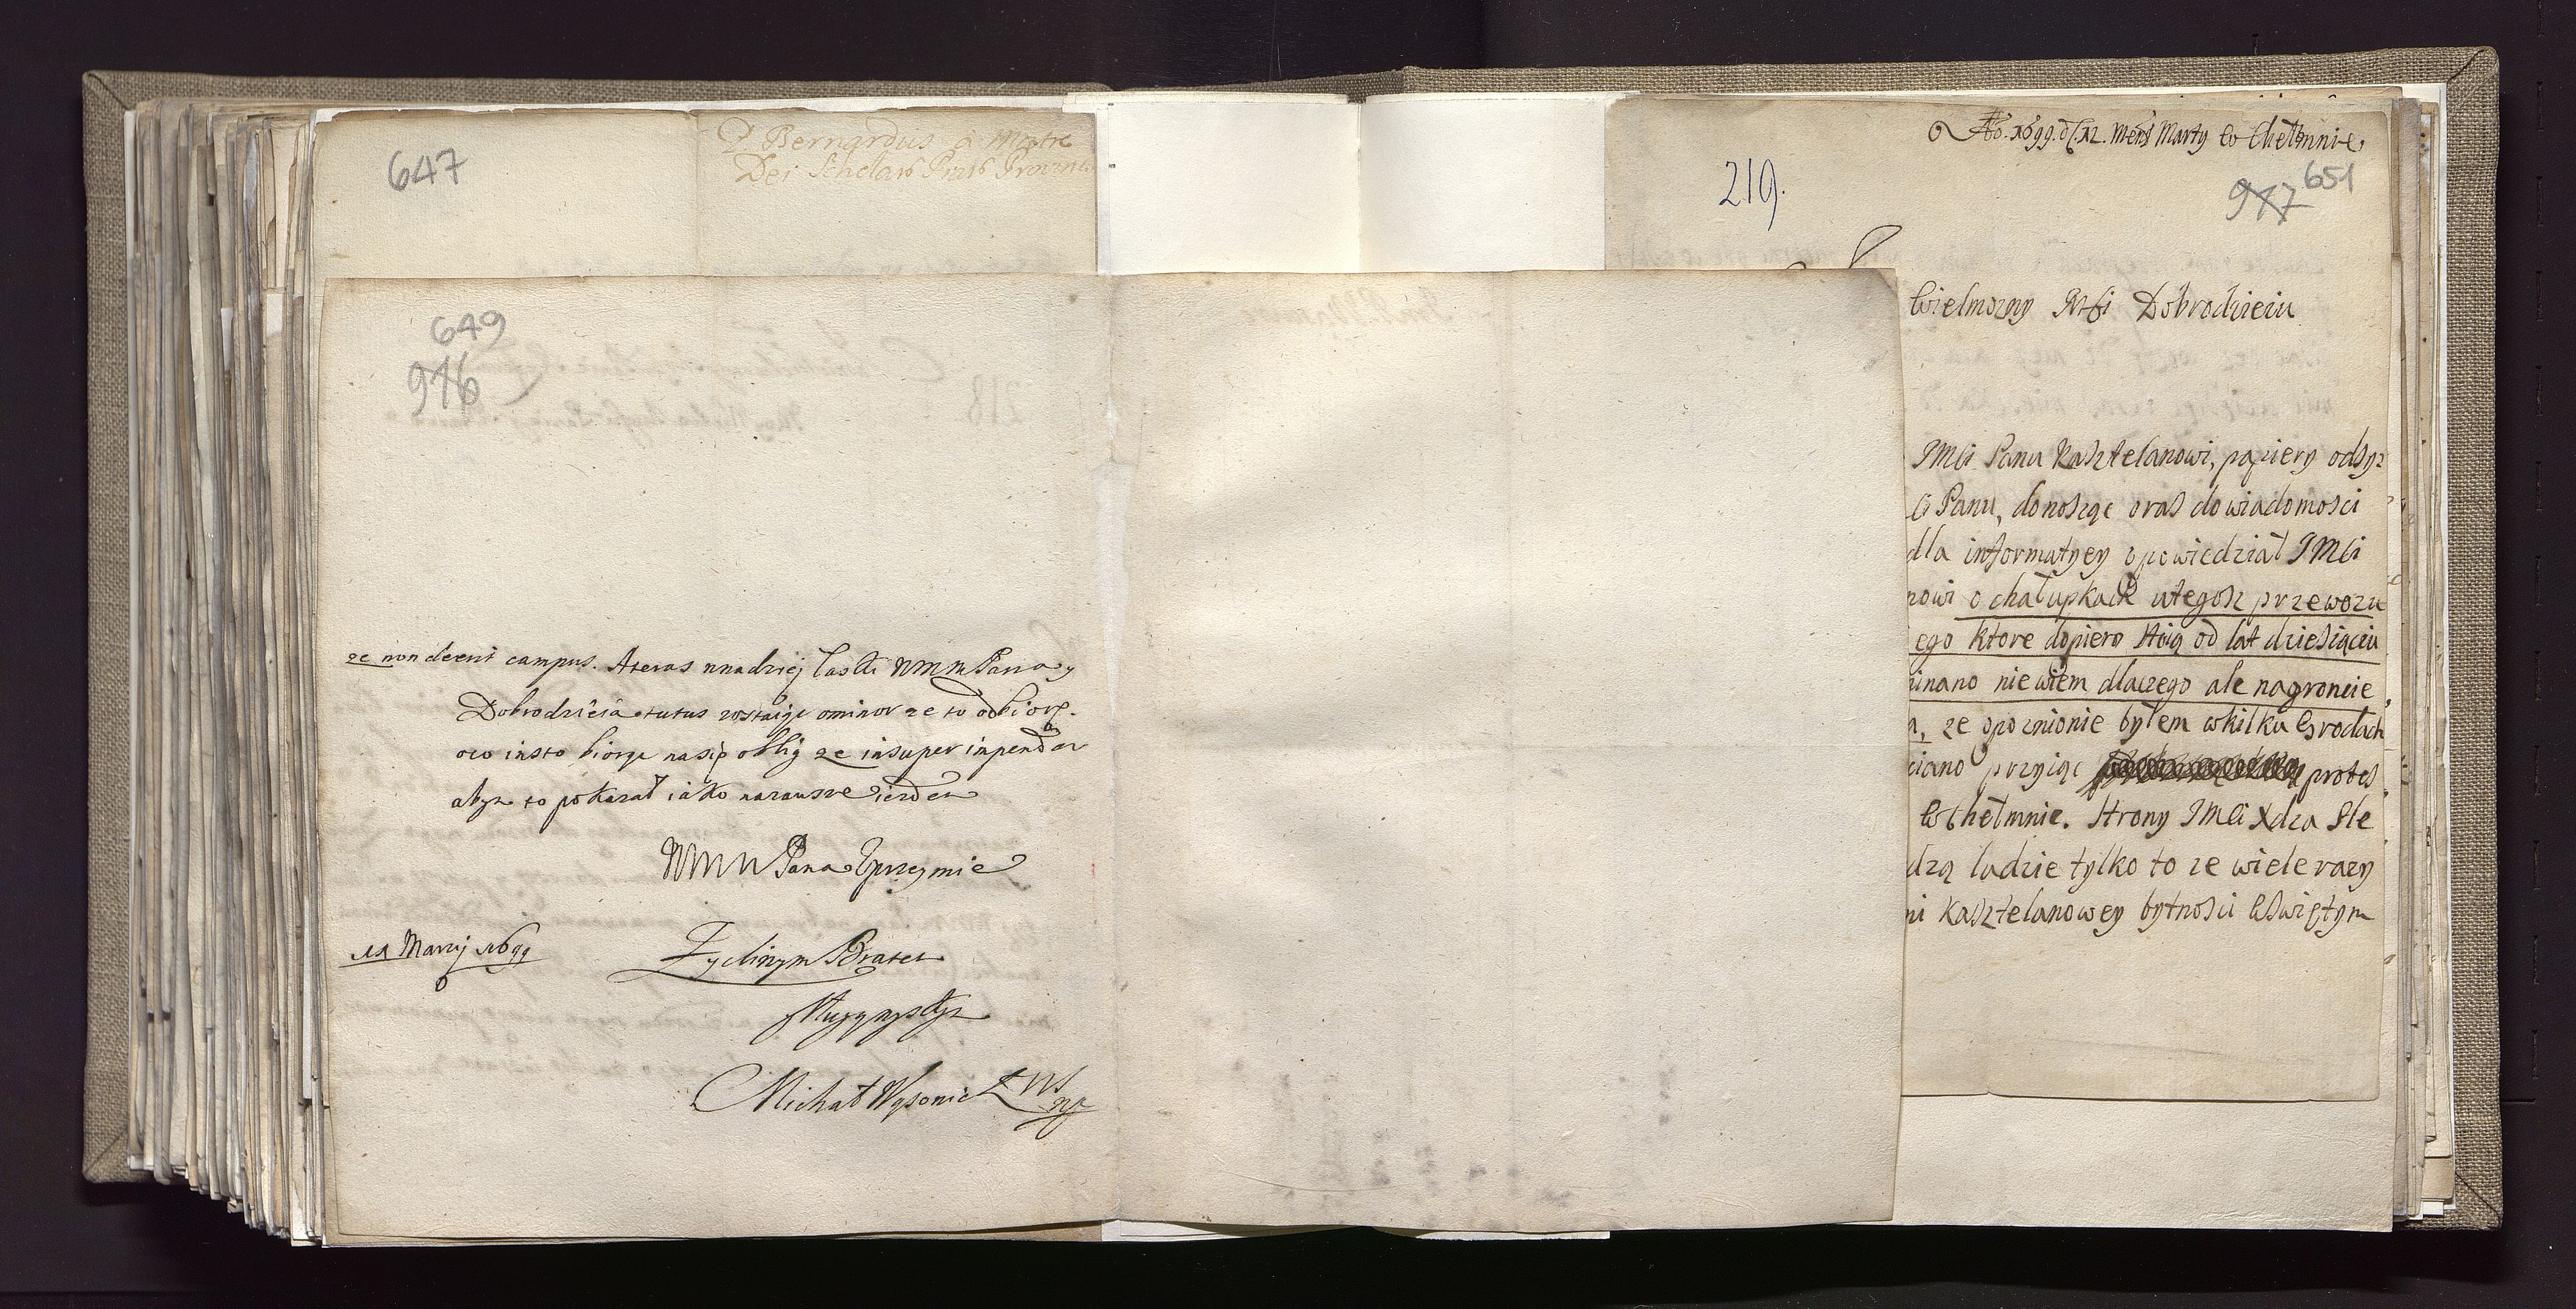 647
P. Bernardus à Matre
Dei Scholar Piar Provin
649
916
ze non deerit campus. A teraz w nadziej łaski WMM Pana y
Dobrodzieia totus zostaiąc ominor ze to odbiorę.
oco insto biorąc na się oblig ze insuper inpendar
abym to pokazał iako na zawsze iestem
WMM Pana Uprzeymie
Zyczliwym Bratem
Sługą
12 Marzij 1699
Michał Wąsowic
219.
Ao. 1699. d. 12. mens Marty w Chełmnie
651
917
Wielmozny Mści Dobrodzieiu
IMći Panu Kasztelanowi, papiery odsyz
Panu, donosząc oras do wiadomosci
dla informatyey opowiedział IMći
nowi o chałupkach utegosz przewozu
ego ktore dopiero stoią od lat dziesiąciu
inano nie wiem dlaczego ale na groncie
, ze opoznione byłem w kilku Grodach
ciano przyiąć protes
w Chełmnie. Strony IMći Xdza Sle
dzą ludzie tylko to ze wiele razy
ni Kasztelanowey bytnosci Wswiętym